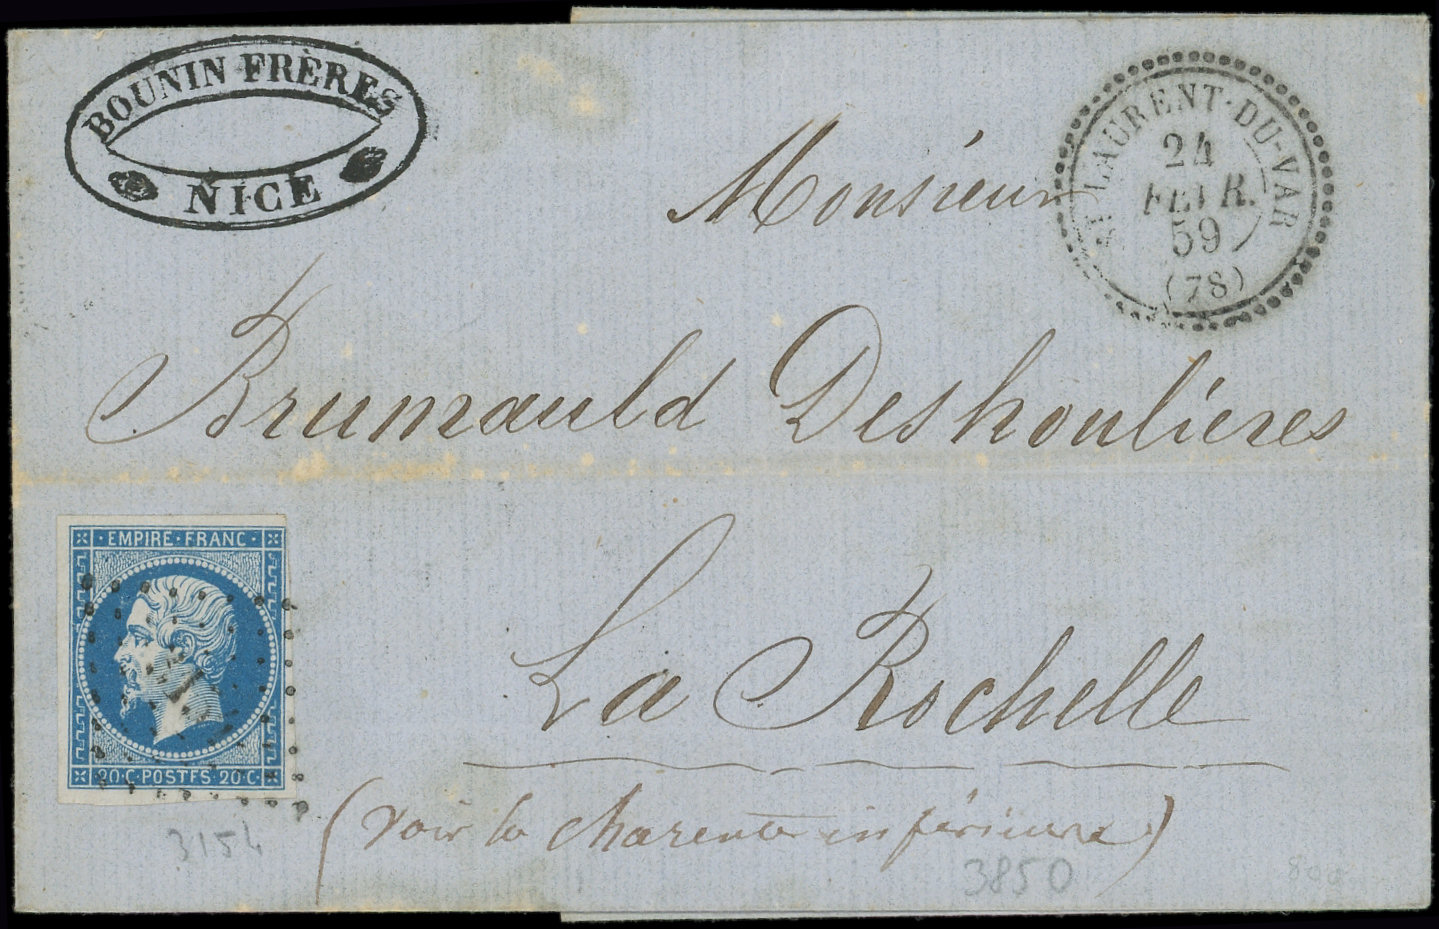 BOUNIN FRÈRES
NICE
ST LAURENT-DU-VAR
24
FEVR.
59
(78)
Monsieur
Brumauld Deshoulieres
La Rochelle
(voir la charente inférieure)
EMPIRE·FRANC·
20·C·POSTES·20·C·
3154
3850